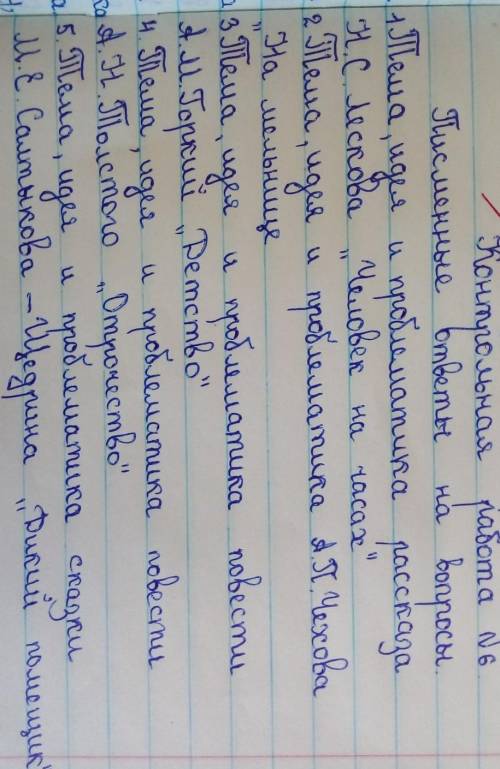 Контрольная работа №6.
Писменные ответы на вопросы.
1. Тема, идея и проблематика рассказа
Н.С. Лескова "Человек на часах"
2 Тема, идея и проблематика А.П. Чехова
"На мельнице
3. Тема, идея и проблематика повести
А.М. Горкий "Детство"
4. Тема, идея и проблематика повести
А.Н. Толстого "Отрочество"
5. Тема, идея и проблематика сказки
М.Е. Салтыкова - Щедрина "Дикий помещик"